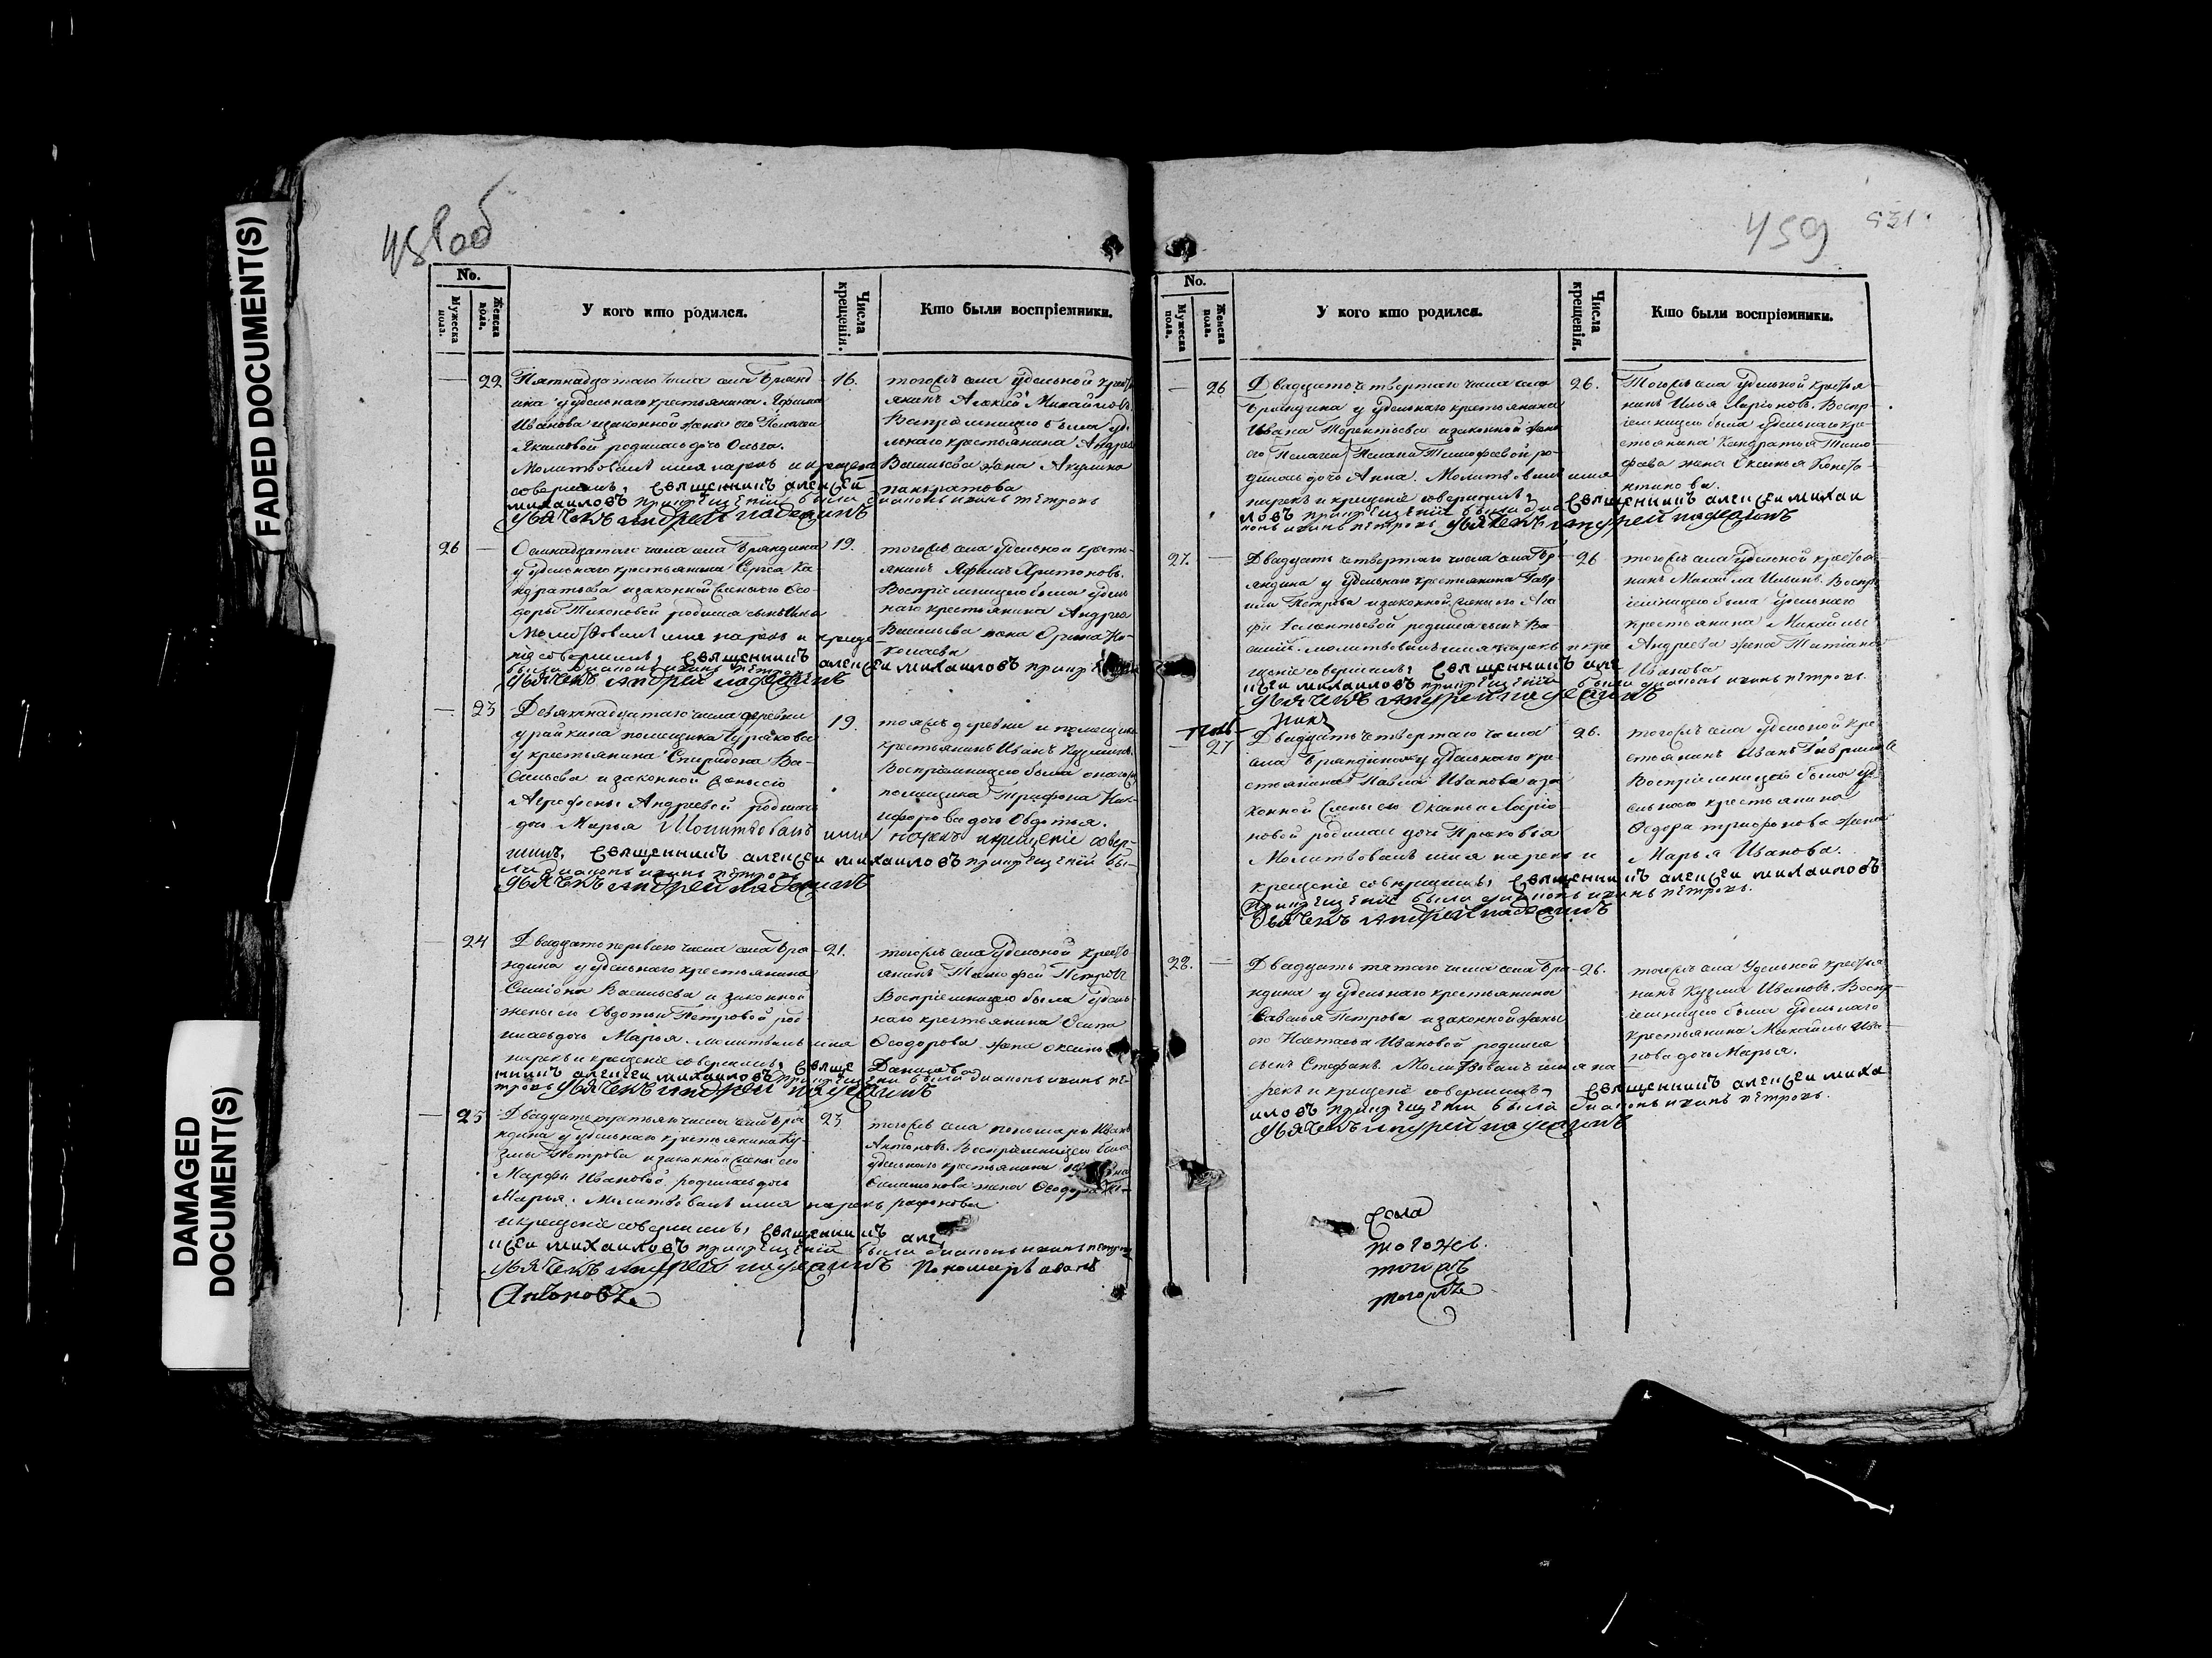 FADED DOCUMENT(S)
DAMAGED
DOCUMENT(S)
458об
No.
Мужеска пола.
Женска пола.
У кого кто родился.
Числа крещенія.
Кто были воспріемники.
22
Пятнадцатаго числа села Брянд
ина у удельнаго крестьянина Афима
Иванова и законной жены его Пелагеи
Якимовой родилась дочь Ольга.
Молитвовалъ имя нарекъ и крещение
совершилъ, священникъ алексей
михаиловъ при крещении были диаконъ иванъ петровъ
дьячекъ андрей
16.
тогожъ села удельной кресть
янинъ Алексей Михайловъ.
Воспріемницею была уде
льнаго крестьянина Андрея
Васильева жена Акулина
панкратова
26
Осмнадцатаго числа села Бряндина
у удельнаго крестьянина Сергея Ка
ндратьева и законной жены его Фео
доры Тихоновой родился сынъ Илья
Молитвовалъ имя нарекъ и креще
ние совершилъ, священникъ алексеи михаиловъ при крещении
были диаконъ иванъ петровъ
дьячекъ андрей
19.
тогожъ села удельной кресть
янинъ Афимъ Харитоновъ.
Воспріемницею была удель
наго крестьянина Андрея
Васильева жена Орина
23
Девятнадцатаго числа деревни
урайкина помещика Чуракова
у крестьянина Спиридона Ва
сильева и законной жены его
Агрофены Андреевой родилась
дочь Марья Молитвовалъ имя нарекъ и крещеніе совер
шилъ, священникъ алексеи михаиловъ при крещении бы
ли диаконъ иванъ петровъ
дьячекъ андрей
19.
тояжъ деревни и помещика
крестьянинъ Иванъ Кузминъ.
Воспріемницею была онагожъ
помещика Трифона Ни
кифорова дочь Овдотья.
24
Двадцать перваго числа села Бря
ндина у удельнаго крестьянина
Симиона Васильева и законной
жены его Овдотьи Петровой род
илась дочь Марья. Молитвовалъ имя
нарекъ и крещение совершилъ, свяще
нникъ алексеи михаиловъ при крещении были диаконъ иванъ пе
тровъ дьячекъ андрей
21.
тогожъ села удельной кресть
янинъ Тимофей Петровъ
Воспріемницею была удель
наго крестьянина Осипа
Феодорова жена Оксинья
Данилова
25
Двадцать третьяго числа села Бря
ндина у удельнаго крестьянина Ку
змы Петрова и законной жены его
Марфы Ивановой родилась дочь
Марья. Молитвовалъ имя нарекъ
и крещение совершилъ, священникъ але
ксеи михаиловъ при крещении были диаконъ иванъ петровъ
дьячекъ андрей Пономарь иванъ
Антоновъ
23
тогожъ села пономарь Иванъ
Антоновъ. Воспріемницею была
удельнаго крестьянина
жена Феодора
459
531
No.
Мужеска пола.
Женска пола.
У кого кто родился.
Числа крещенія.
Кто были воспріемники.
26
Двадцать четвертаго числа села
Бряндина у удельнаго крестьянина
Ивана Терентьева и законной жены
его Пелагеи Тимофеевой ро
дилась дочь Анна. Молитвовалъ имя
нарекъ и крещение совершилъ, священникъ алексеи михаи
ловъ при крещении были диа
конъ иванъ петровъ дьячекъ андрей
26.
Тогожъ села удельной крестья
нинъ Илья Ларіоновъ. Воспр
іемницею была удельнаго кре
стьянина Кандратья Тимо
феева жена Оксинья Конста
нтинова.
27.
Двадцать четвертаго числа села Бр
яндина у удельнаго крестьянина Гавр
ила Петрова и законной жены его Ага
фьи родился сынъ Ва
силий. молитвовалъ имя нарекъ и кре
щение совершилъ, священникъ але
ксеи михаиловъ при крещении были диаконъ иванъ петровъ.
дьячекъ андрей
26
тогожъ села удельной крестья
нинъ Михайла Ильинъ. Воспр
іемницею была удельнаго
крестьянина Михайлы
Андреева жена Татіана
Иванова
27
Двадцать четвертаго числа
села Бряндина у удельнаго кре
стьянина Павла Иванова и за
конной жены его Оксиньи Ларіо
новой родилась дочь Прасковья
Молитвовалъ имя нарекъ и
крещеніе совершилъ, священникъ алексеи михаиловъ
При крещении были диаконъ иванъ петровъ.
дьячекъ андрей
26.
тогожъ села удельной кре
стьянинъ Иванъ Гавриловъ
Воспріемницей была уд
ельнаго крестьянина
Федора трифонова жена
Марья Иванова.
28.
Двадцать пятаго числа села Бря
ндина у удельнаго крестьянина
Савелья Петрова и законной жены
его Настасьи Ивановой родился
сынъ Стефанъ. Молитвовалъ имя на
рекъ и крещение совершилъ, священникъ алексеи миха
иловъ при крещении были диаконъ иванъ петровъ.
дьячекъ андрей
26.
тогожъ села Удельной крестья
нинъ Кузма Ивановъ. Воспр
іемницею была удельнаго
крестьянина Михайлы Ива
нова дочь Марья.
Села
тогожъ.
тогожъ